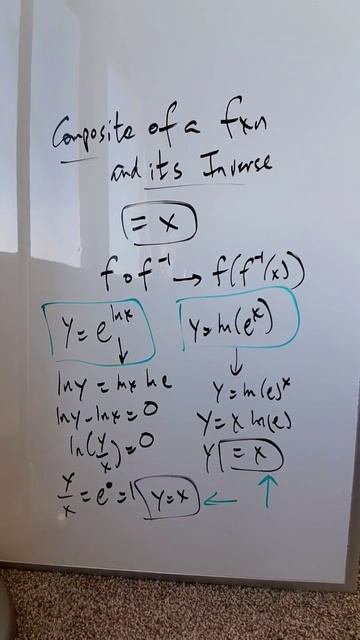 Composite of a fxn
and its Inverse
= x
f ∘ f⁻¹ → f(f⁻¹(x))
y = e^lnx
↓
lny = lnx lne
lny - lnx = 0
ln(y/x) = 0
y/x = e⁰ = 1 y=x ←
y = ln(eˣ)
↓
y = ln(e)ˣ
y = x ln(e)
y = x
↑